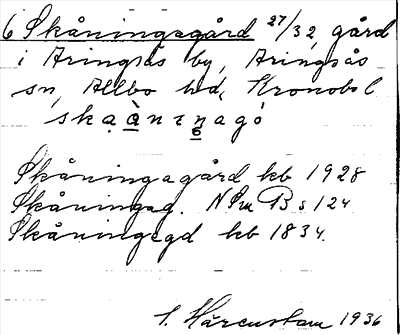 6 Skåningagård 27/32, gård
i Aringsås by, Aringsås
sn, Allbo hd, Kronob l
Skåningagård kb 1928
Skåningag. B s 124
Skåningegd kb 1834.
1936